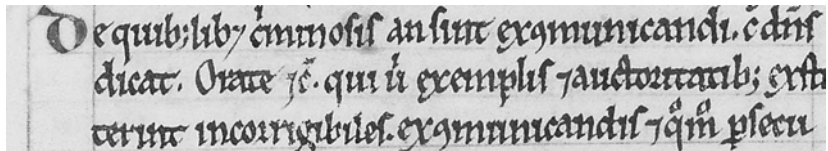 De quib; lib⁊ c̾minosis an sint exꝯmunicandi. c̄ dn̄s
dicat. Orate ⁊c̄. qui u̾ exemplis ⁊ auctoritatib; exsti
terint incorrigibiles. exꝯmunicandis ⁊ qͦmͦ ꝑsecu